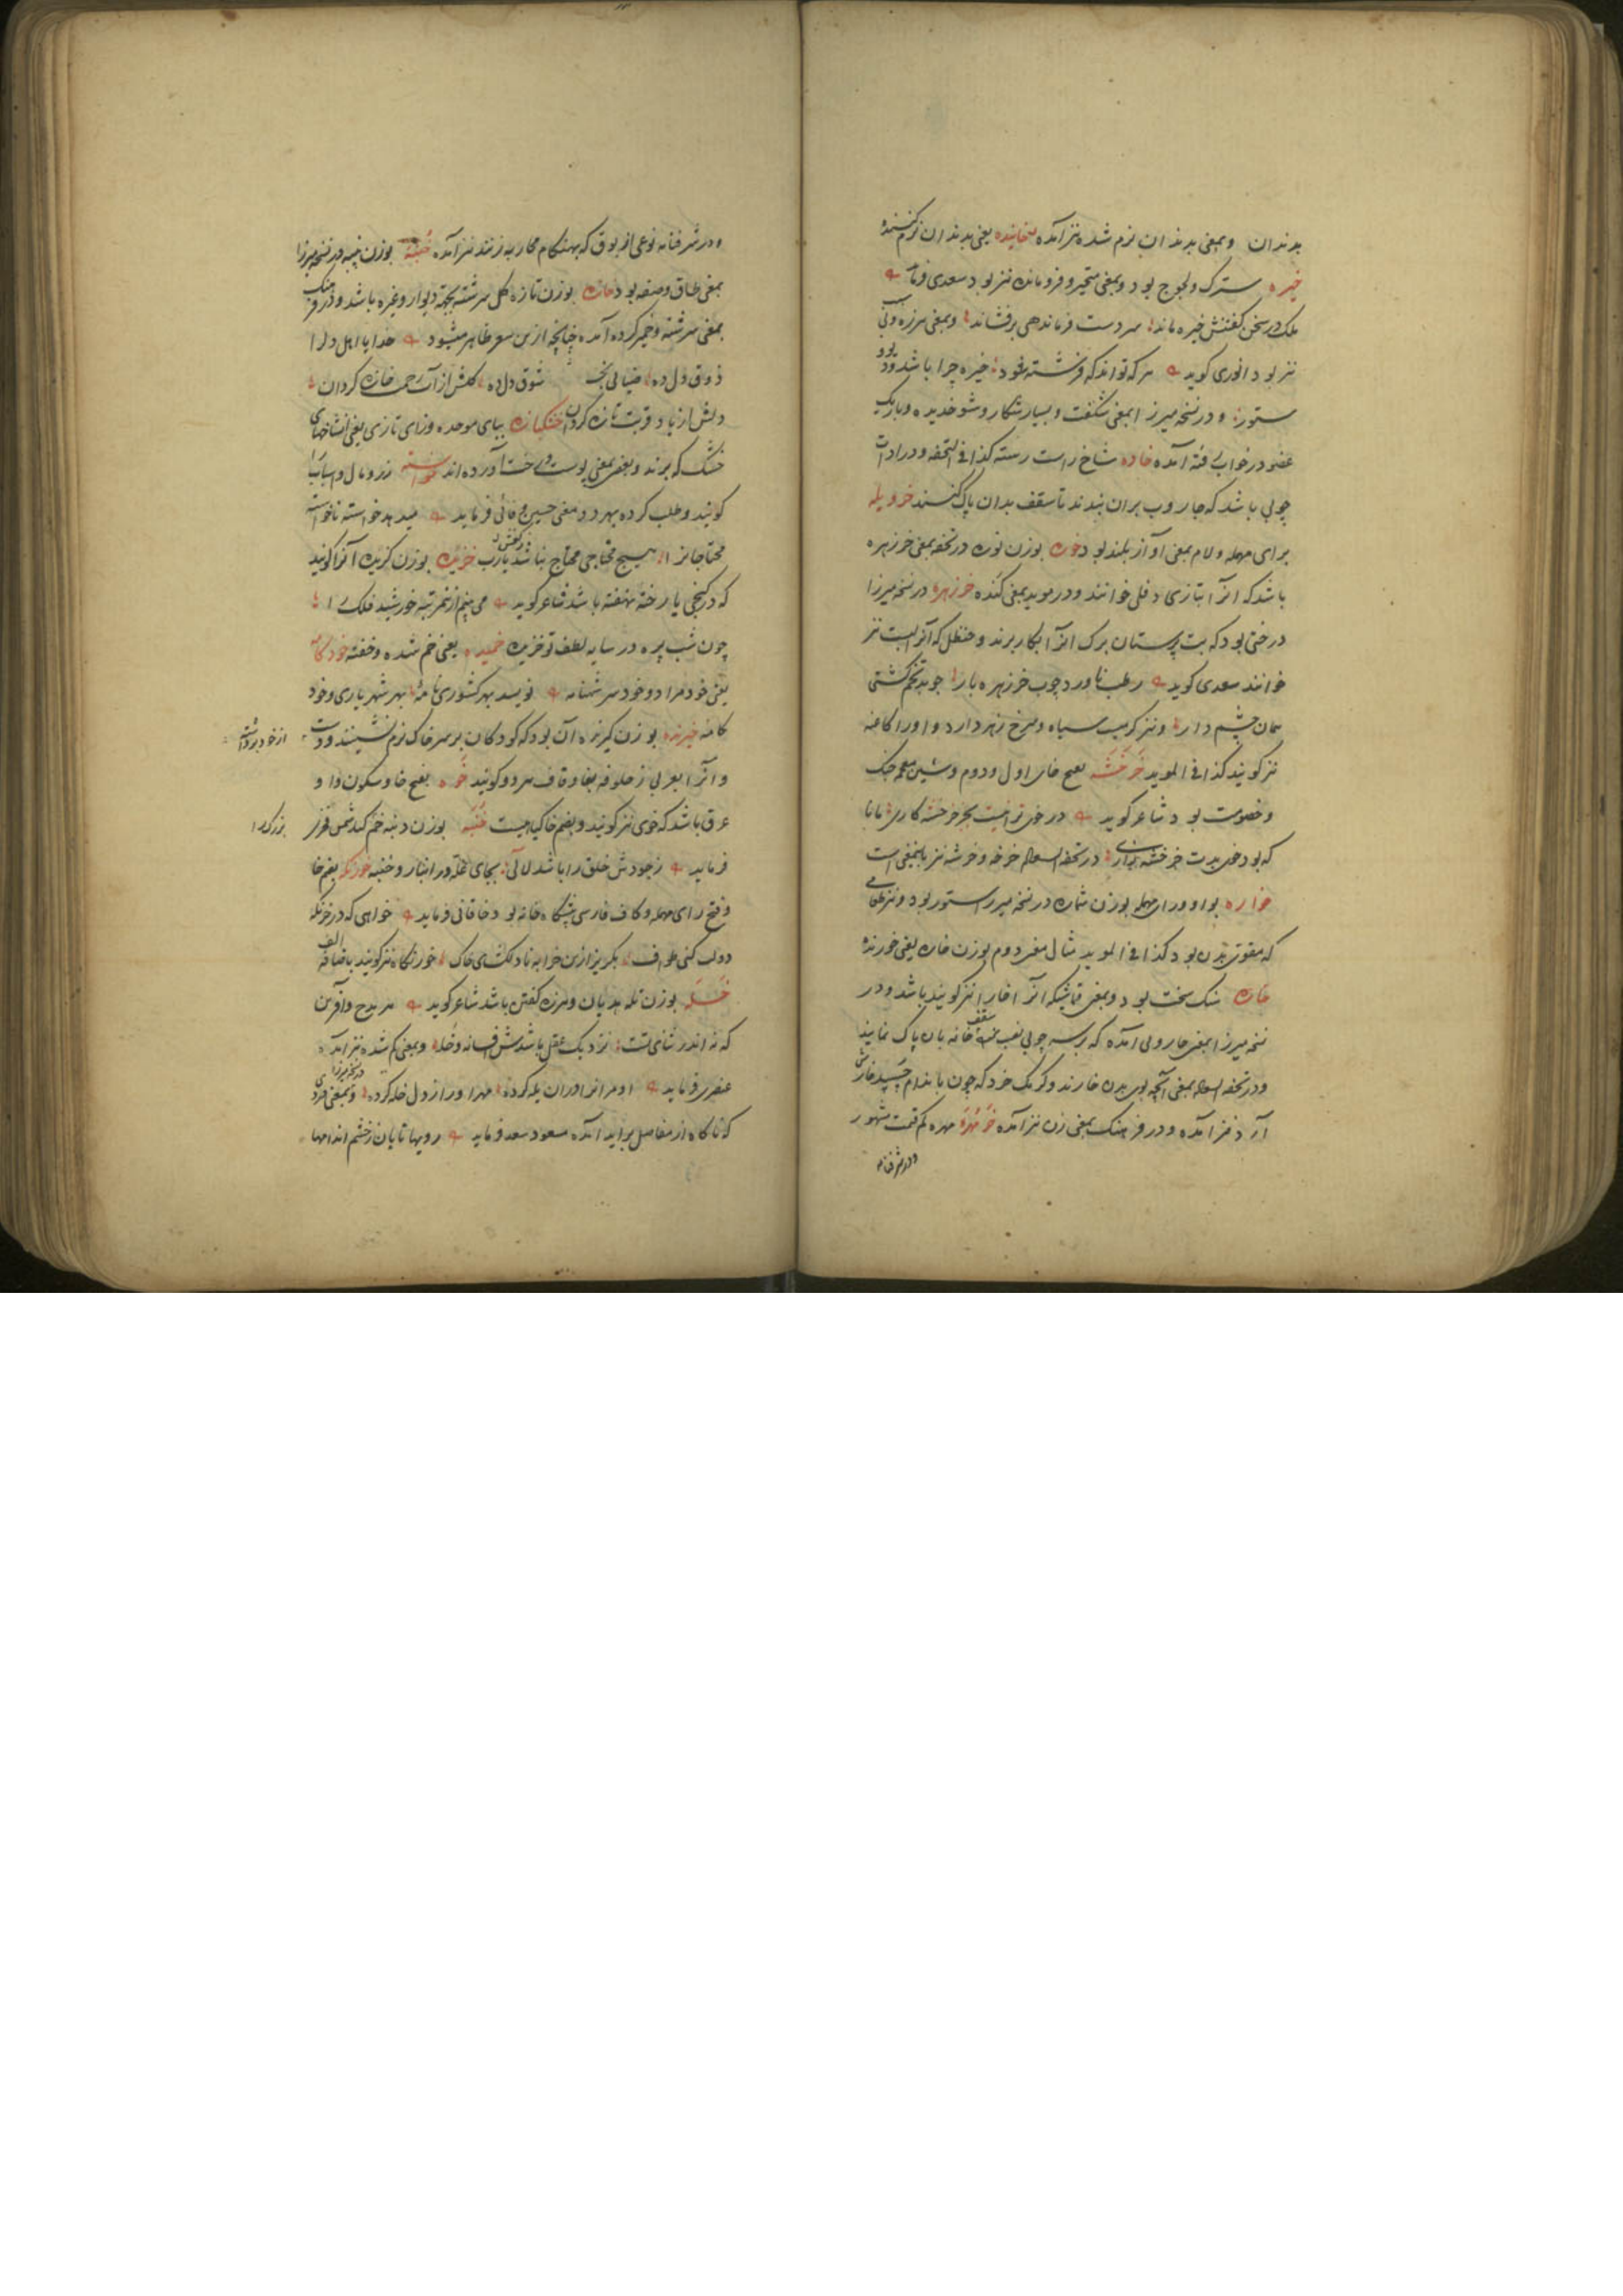 بدندان و بمعنی بدندان نرم شده نیز آمده خاینده یعنی بدندان نرم کننده
خیره سترک و لجوج بود و بمعنی متحیر و فرومانده نیز بود سعدی فرماید
ملک در سخن گفتنش خیره ماند سر دست فرماندهی برفشاند و بمعنی هرزه و
نیز بود انوری کوید هر که تواند که فرشته شود خیره چرا باشد دیو و
ستور و در نسخه میرزا بمعنی شکفت و بسیار و شوخ دیده و تاریک
عضو در خواب رفته آمده خاده شاخ راست رسته کذا فی التحفه و در ادات
چوبی باشد که جاروب بران بندند تا سقف بدان پاک کنند خرویله
برای مهمله و لام بمعنی آواز بلند بود خوره بوزن توره در تحفه بمعنی خرزهره
باشد که انرا بتازی دفلی خوانند و در موید بمعنی کنده خرزهره در نسخه میرزا
درختی بود که بت پرستان برک انرا بکار برند و حنظل که آنرا
خوانند سعدی کوید رطب ناورد چوب خرزهره بار چو تخم کشتی
همان چشم دار و نیز کرمیست سیاه و سرخ زهر دارد و او را کاغنه
نیز کویند کذا فی الموید خرخشه بفتح خای اول و دوم و شین معجمه جنک
و خصومت بود شاعر کوید در خوی تو نیست بجز خرخشه کاری مانا
که بود خوی بدت خرخشه در تحفه السعاده خرخه و خرشه نیز باینمعنی است
خواره بواو و رای مهمله بوزن شماره در نسخه میرزا ستور بود و نیز طعامی
که مقوی بدن بود کذا فی الموید مثال معنی دوم بوزن خاره یعنی خورنده
خاره سنک سخت بود و بمعنی قماشیکه انرا خارا نیز کویند باشد و در
نسخه میرزا بمعنی جاروبی آمده که بر سر چوبی نصب سقف خانه بان پاک نمایند
و در تحفه السعاده بمعنی آنچه بوی بدن خارند و کرمک خرد که چون باندام چسپد خارش
آرد نیز آمده و در فرهنک بمعنی زن نیز آمده خرمهره مهره کم قیمت مشهور
و در شرفنامه
و در شرفنامه نوعی از بوق که بهنکام محاربه زنند نیز آمده خنبه بوزن پنبه در نسخه میرزا
بمعنی طاق و صفه بود خازه بوزن تازه کل سرشته بجهة دیوار و غیره باشد و در فرهنک
بمعنی سرشته و خمیر کرده آمده چنانچه ازین شعر ظاهر میشود خدایا اهل دل را
ذوق دل ده ضیائی بخش شوق دل ده کلش از آب رحمت خازه کردان
دلش از یاد قربت تازه کردان خشکبازه ببای موحده و زای تازی یعنی شاخهای
خشک که برند و بعضی بمعنی پوست درخت آورده اند خواسته زر و مال و اسباب
کویند و طلب کرده بهر دو معنی حسین وفائی فرماید میدهد خواسته ناخواسته
محتاجانرا هیچ محتاجی محتاج نباشد یارب خزیده بوزن کزیده آنرا کویند
که در کنجی یا رخنه نهفته باشد شاعر کوید می بینم از مرتبه خورشید فلک را
چون شب پره در سایه لطف تو خزیده خمیده یعنی خم شده و خفته خودکامه
یعنی خودمراد و خودسر شهنامه نویسد بهر کشوری نامه بهر شهریاری و خود
کامه خیزنده بوزن کیرنده آن بود که کودکان بر سر خاک نرم نشینند و
از خود بردارند
و آنرا بعربی زحلوفه بفا و قاف هر دو کویند خوه بفتح خا و سکون واو
عرق باشد که خوی نیز کویند و بضم خا کیاهیست خنبه بوزن دنبه خم کلد شمس فخری
بزرکرا
فرماید ز جودش خلق را باشد لآلی بجای غله در انبار و خنبه خورنکه بفتح خا
و فتح رای مهمله و کاف فارسی پیشکاه خانه بود خاقانی فرماید خواهی که در خورنکه
دولت کنی طواف بکریز ازین خرابه نادلکشای خاک خورنکاه نیز کویند باضافه الف
خله بوزن تله هذیان و هرزه کفتن باشد شاعر کوید هر مدح و آفرین
که نه اندر ثنای تست نزدیک عقل باشد افسانه و خله و بمعنی کم شده نیز آمده
عنصری فرماید او مرانرا دران یله کرده مهر او را ز دل خله کرده و در نسخه میرزا بمعنی دردی
که ناکاه از مفاصل براید آمده مسعود سعد فرماید رویها تابان ز خشم اندامها